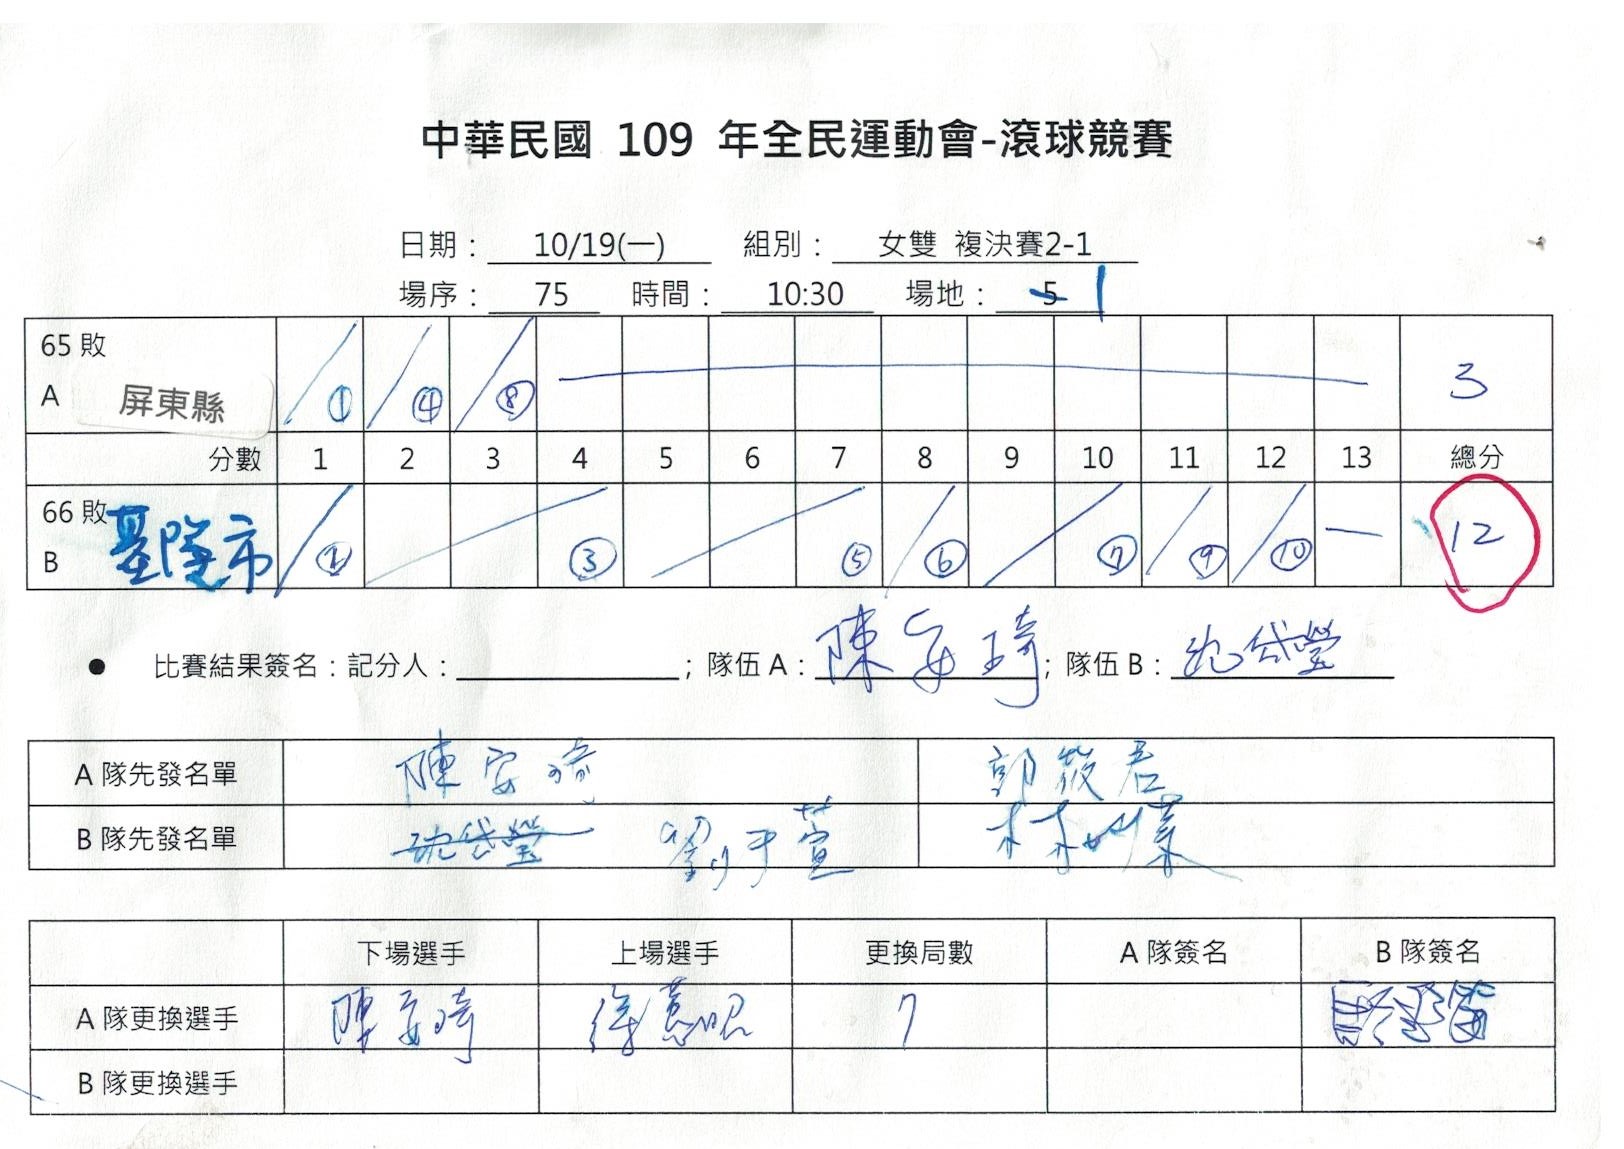 中華民國 109 年全民運動會-滾球競賽
日期： 10/19(一) 組別： 女雙 複決賽2-1
場序： 75 時間： 10:30 場地： 5 1
65 敗
A 屏東縣 ① ④ ⑧ 3
分數 1 2 3 4 5 6 7 8 9 10 11 12 13 總分
66 敗
B 基隆市 ② ③ ⑤ ⑥ ⑦ ⑨ ⑩ 12
● 比賽結果簽名：記分人： ；隊伍 A： 陳安琦 ；隊伍 B： 沈岱瑩
A 隊先發名單 陳安琦 郭筱君
B 隊先發名單 沈岱瑩 劉于萱
下場選手 上場選手 更換局數 A 隊簽名 B 隊簽名
A 隊更換選手 陳安琦 徐慧昭 7
B 隊更換選手